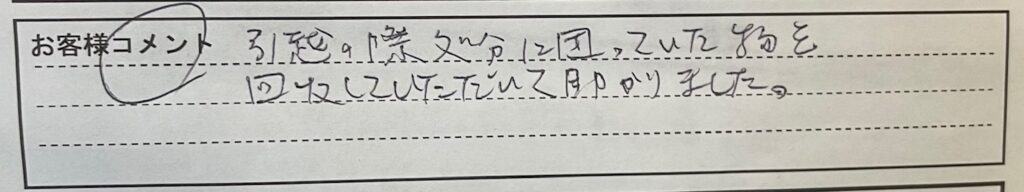 お客様コメント 引越の際処分に困っていた物を
回収していただいて助かりました。